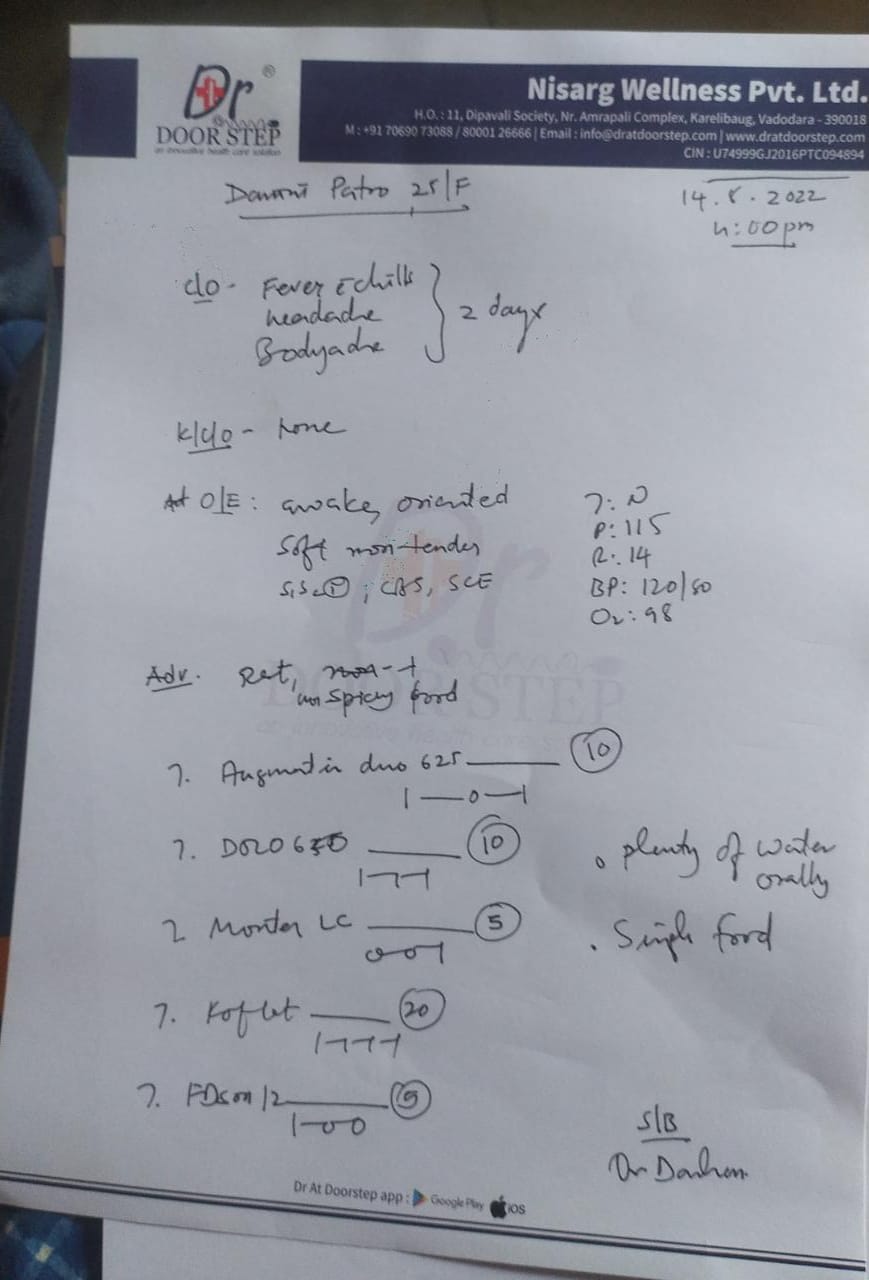 Dr ®
DOOR STEP
an innovative health care solution
Nisarg Wellness Pvt. Ltd.
H.O. : 11, Dipavali Society, Nr. Amrapali Complex, Karelibaug, Vadodara - 390018
M : +91 70690 73088 / 80001 26666 | Email : info@dratdoorstep.com | www.dratdoorstep.com
CIN : U74999GJ2016PTC094894
Patro 25/F
14.8.2022
4:00pm
c/o - Fever c̄ chills
headache
Bodyache
2 days
k/c/o - none
O/E : awake, oriented
soft non-tender
T: N
P: 115
R: 14
BP: 120/80
O2: 98
Adv. Rest,
non spicy food
T. Augmentin duo 625 (10)
1—0—1
T. DOLO 650 (10)
1-1-1
Montek LC (5)
0-0-1
T. Koflet (20)
1-1-1-1
T. (5)
1-0-0
• plenty of water
orally
• Simple food
S/B
Dr
Dr At Doorstep app : Google Play iOS